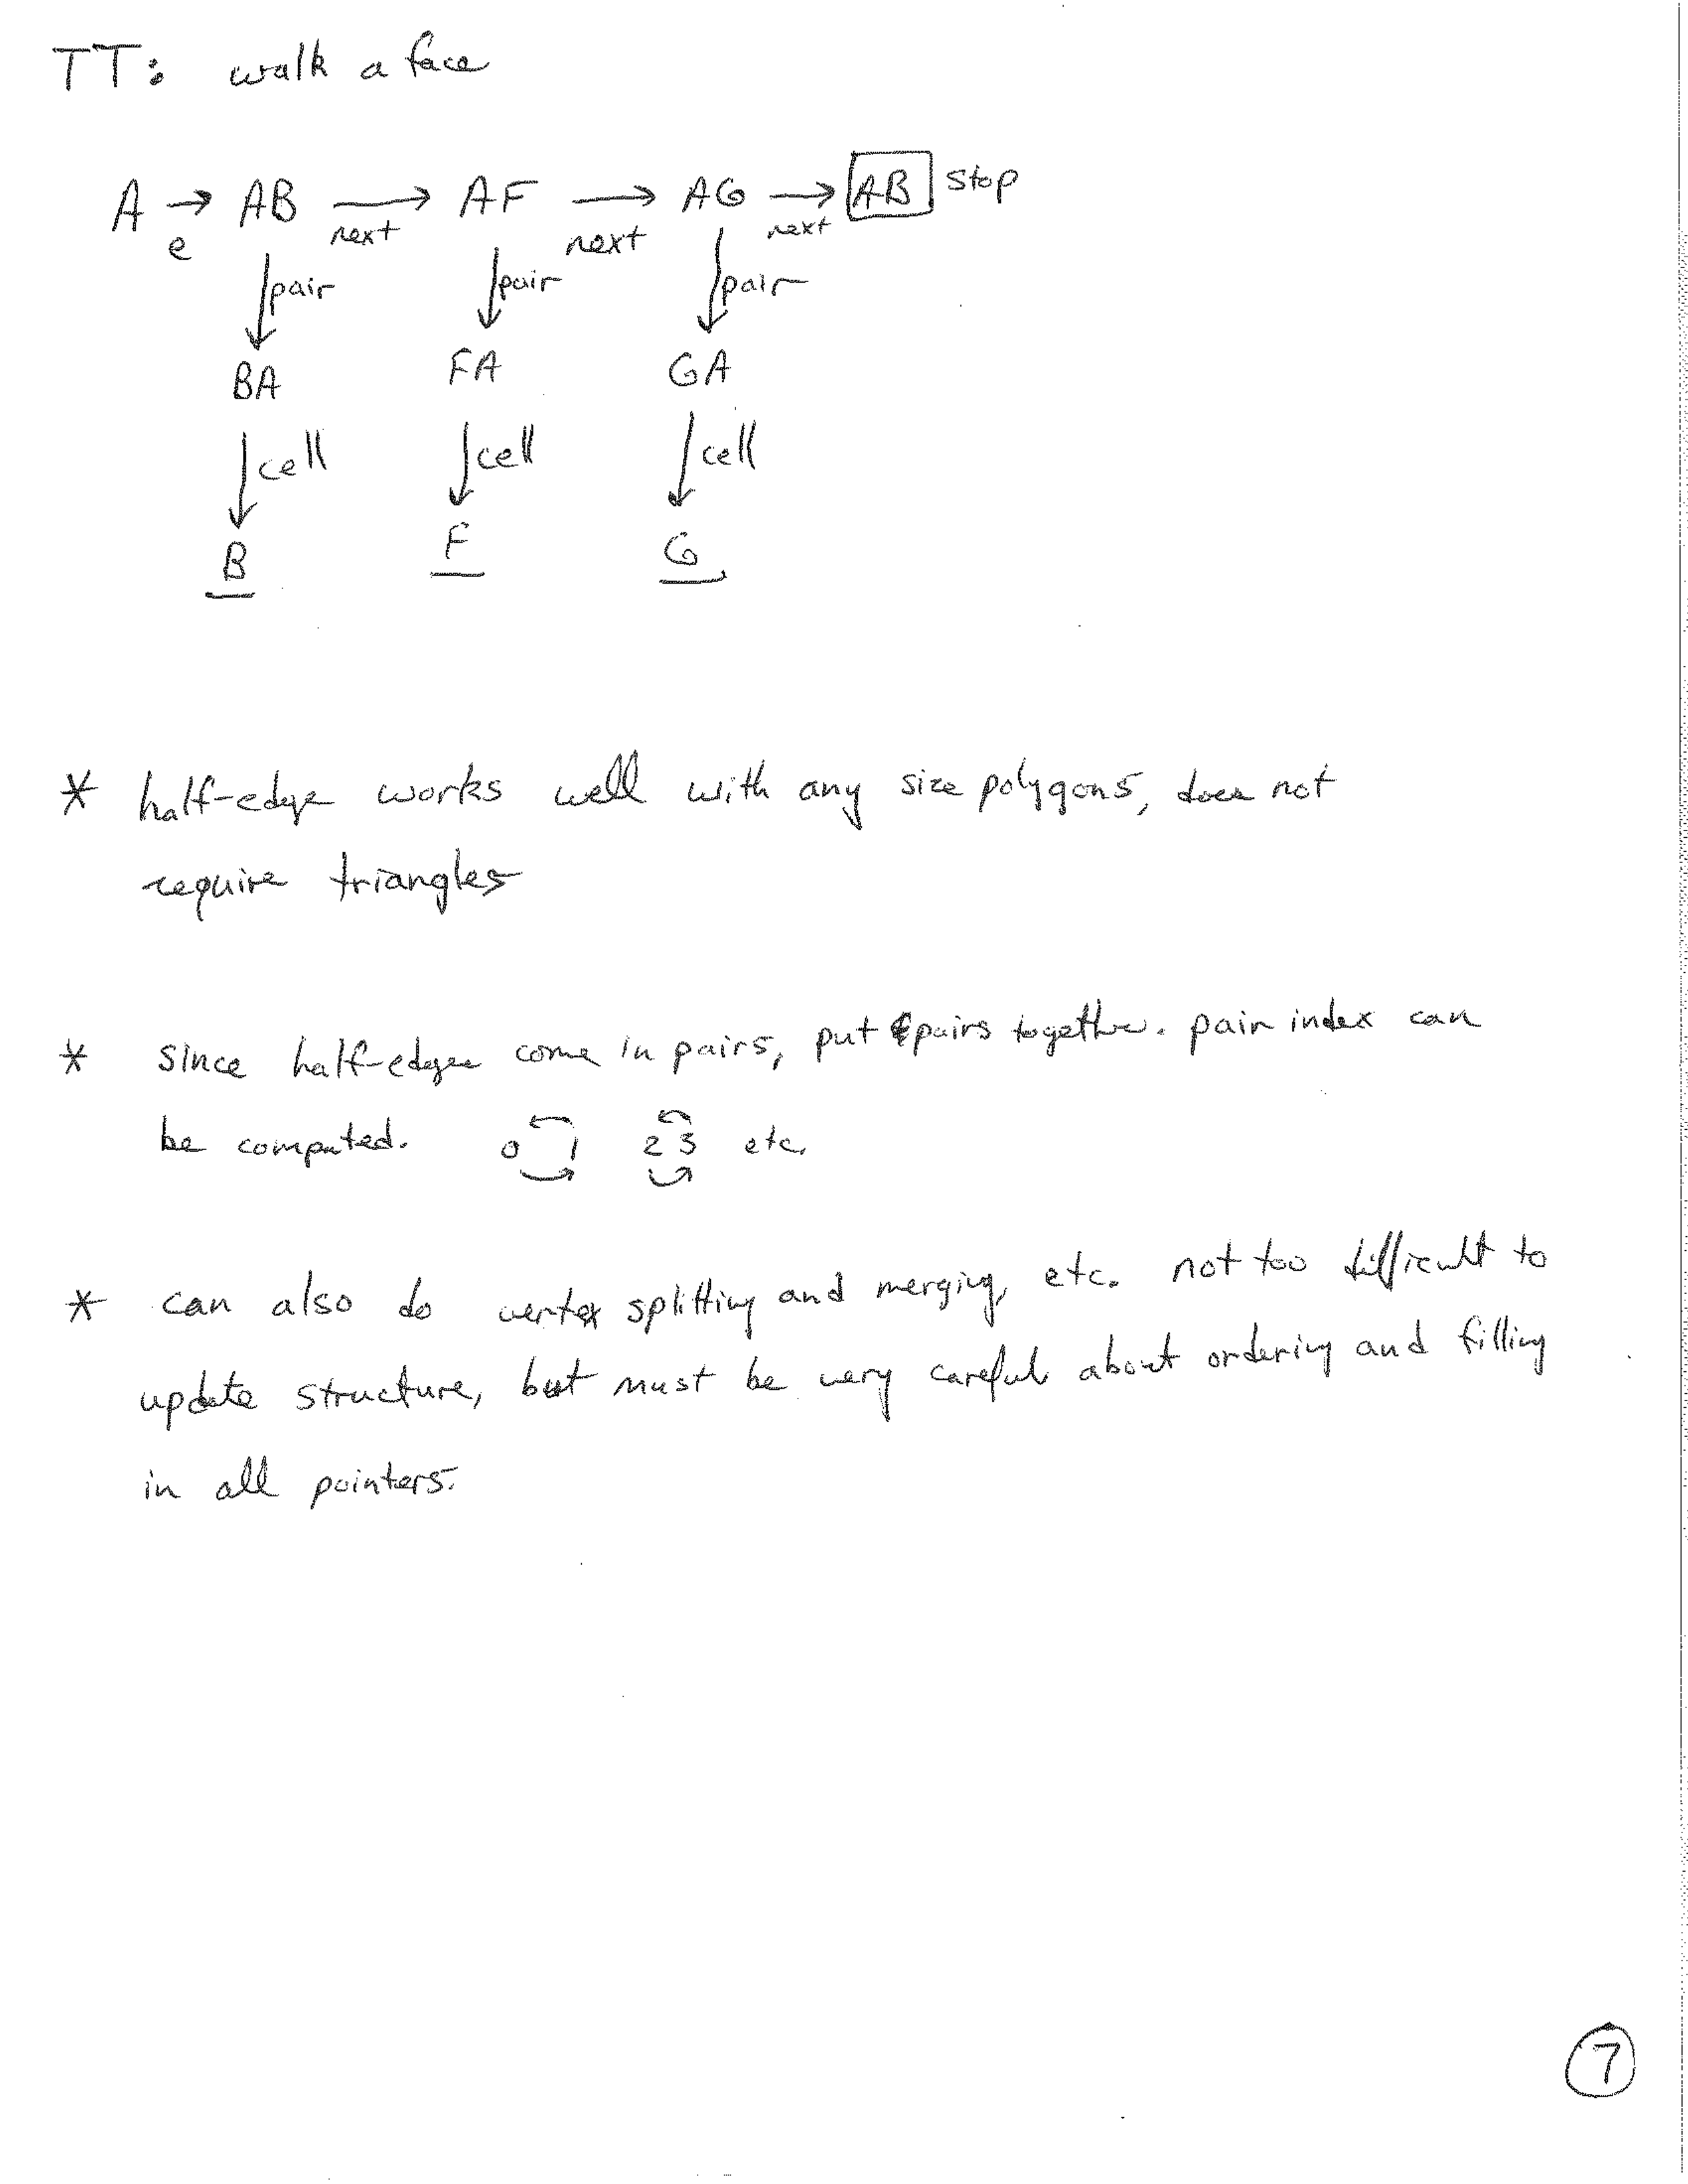 TT: walk a face
A → AB → AF → AG → AB stop
e next next next
pair pair pair
BA FA GA
cell cell cell
B F G
* half-edge works well with any size polygons, does not
require triangles
* since half-edges come in pairs, put pairs together. pair index can
be computed. 0 1 2 3 etc.
* can also do vertex splitting and merging, etc. not too difficult to
update structure, but must be very careful about ordering and filling
in all pointers.
7